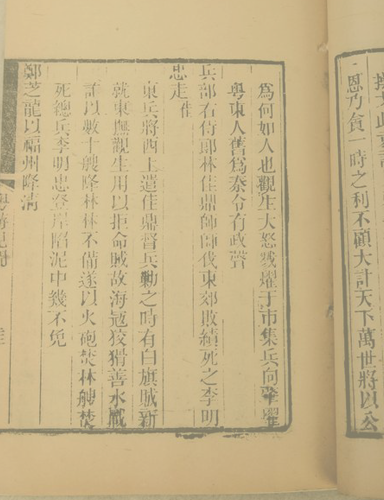 恩乃貪一時之利不顧大計天下萬世將以公
為何如人也觀生大怒戮燿于市集兵向肇
粵東人舊為泰令有政聲
兵部右侍郎林佳鼎帥師伐東郊敗績死之李明
忠走
東兵將西上遣佳鼎督兵勦之時有白旗賊新
就東撫觀生用以拒命賊故海寇狡猾善水戰
詐以數十艘降林林不備遂以火砲焚林艘焚
死總兵李明忠登岸陷泥中幾不免
鄭芝龍以福州降清